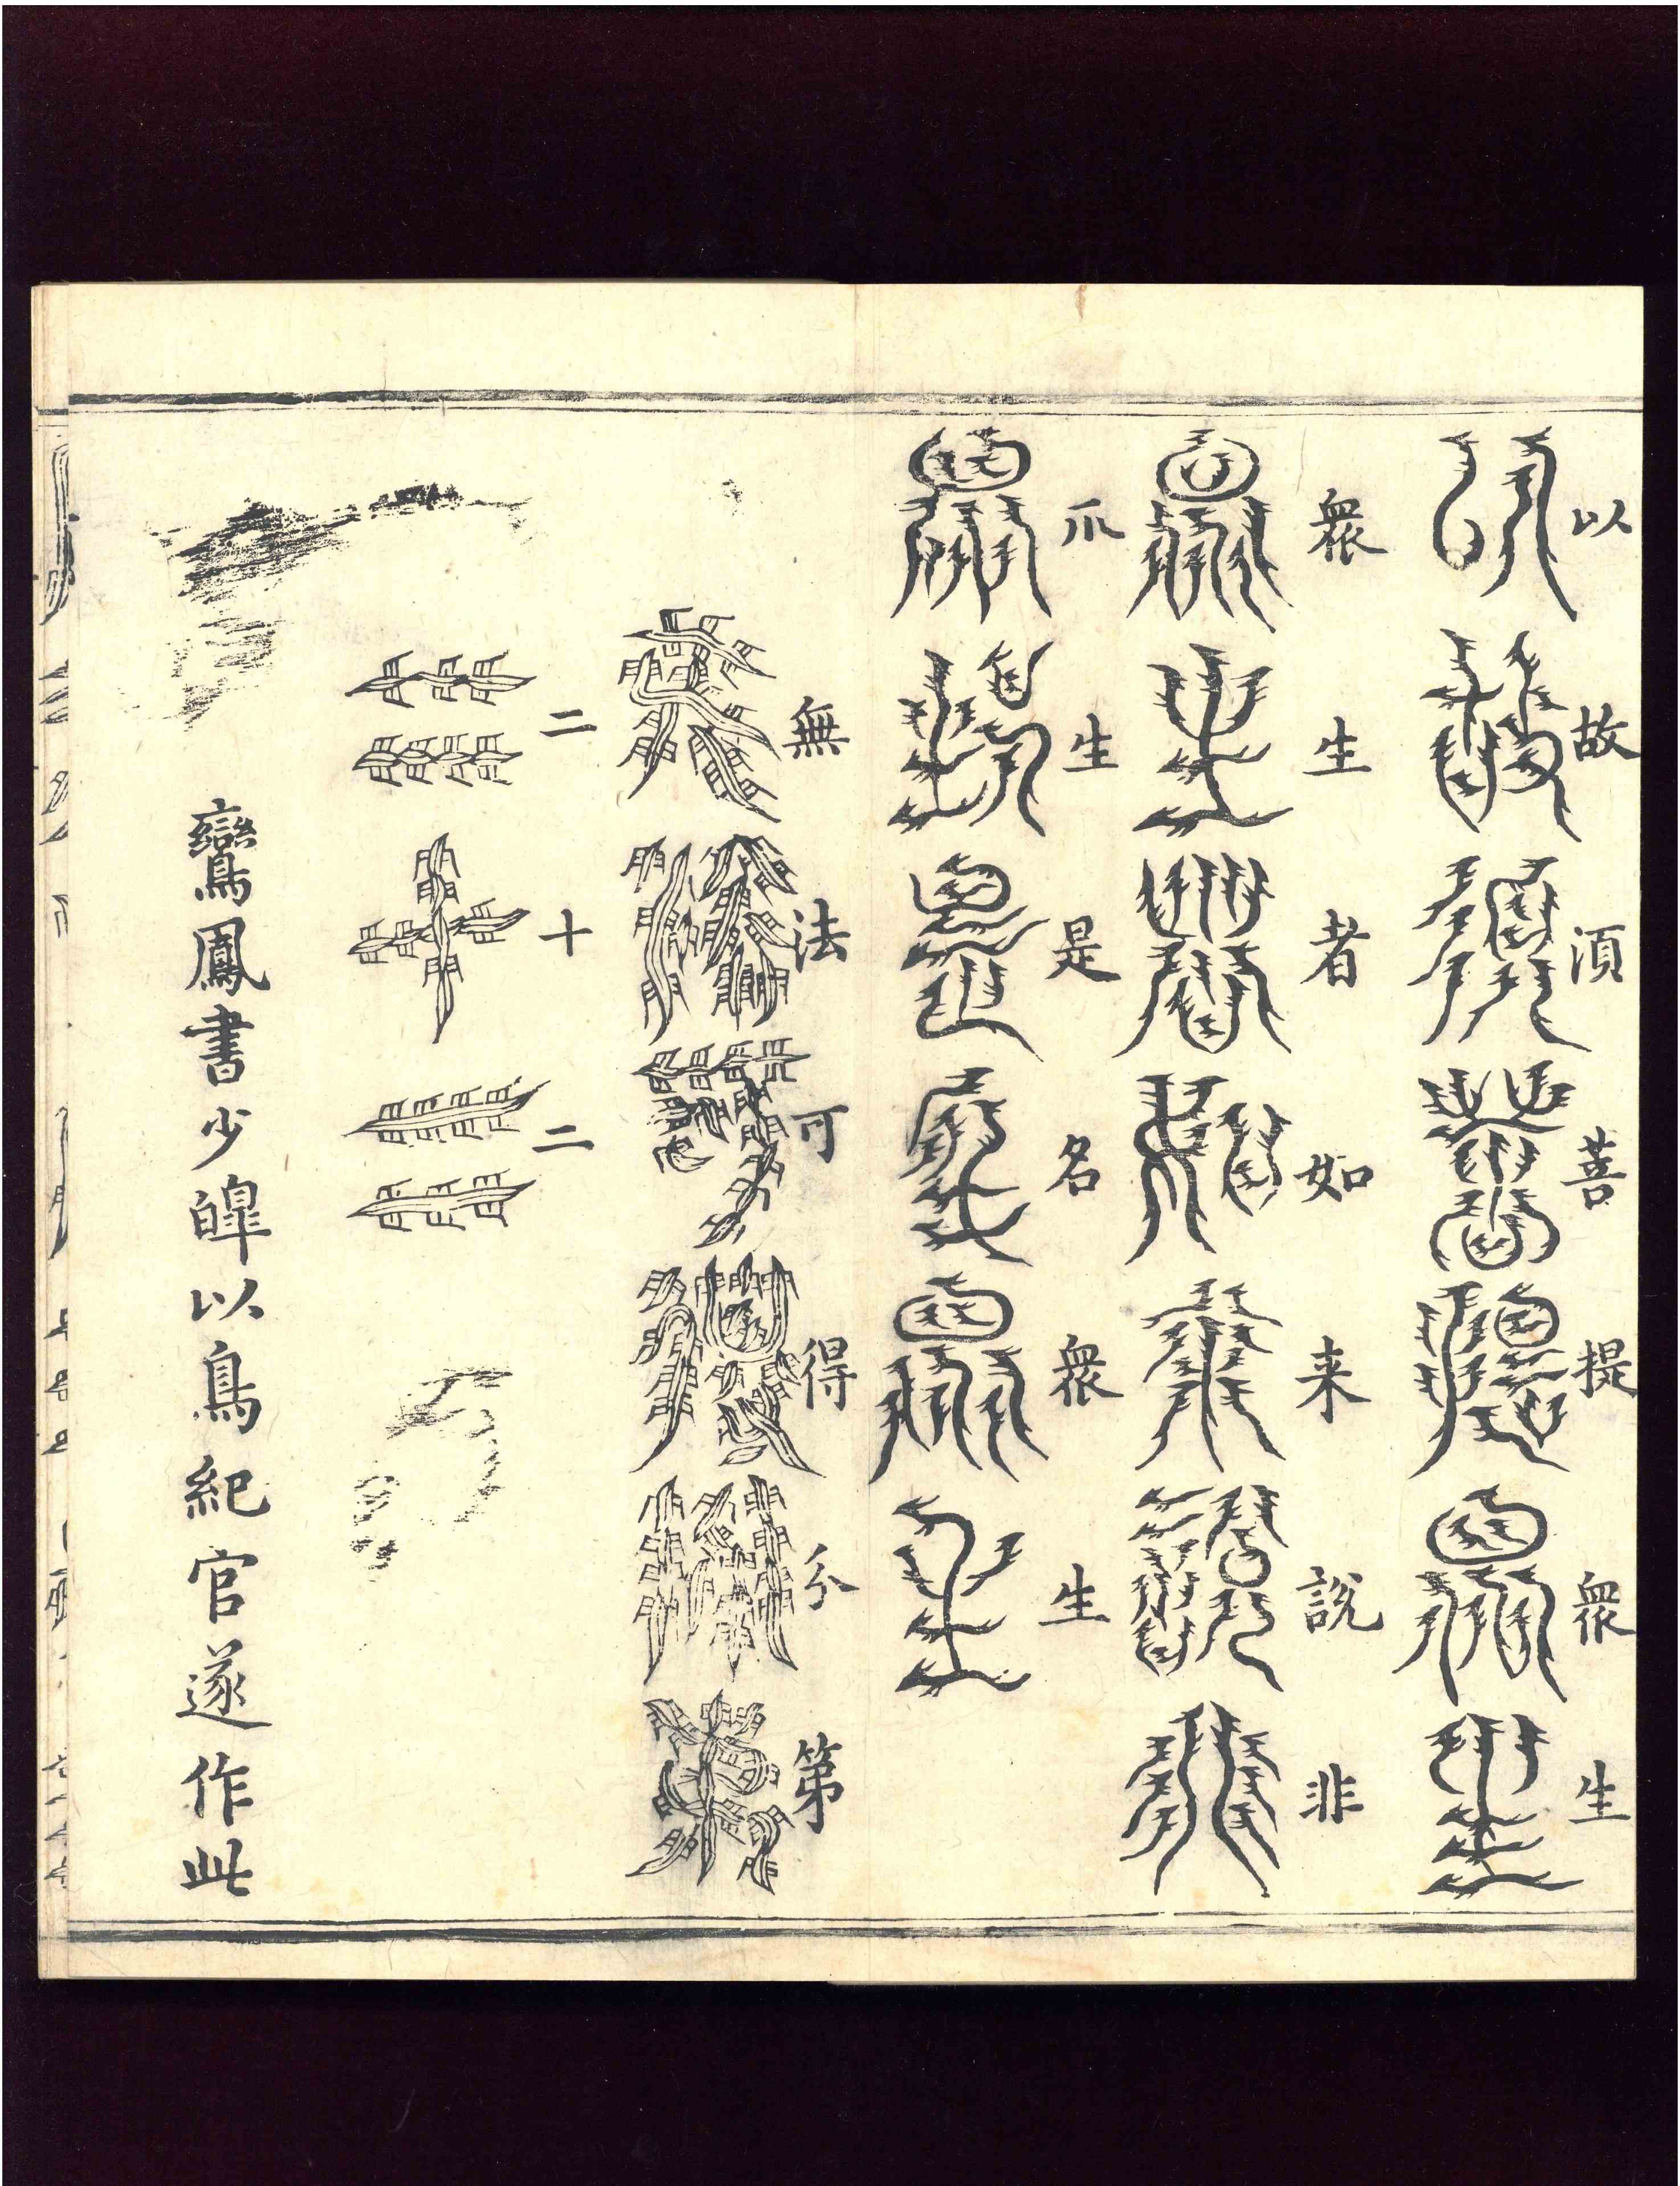 以故湏菩提衆生
衆生者如来說非
衆生是名衆生
無法可得分第
二十二
鸞鳳書少皥以鳥紀官遂作此